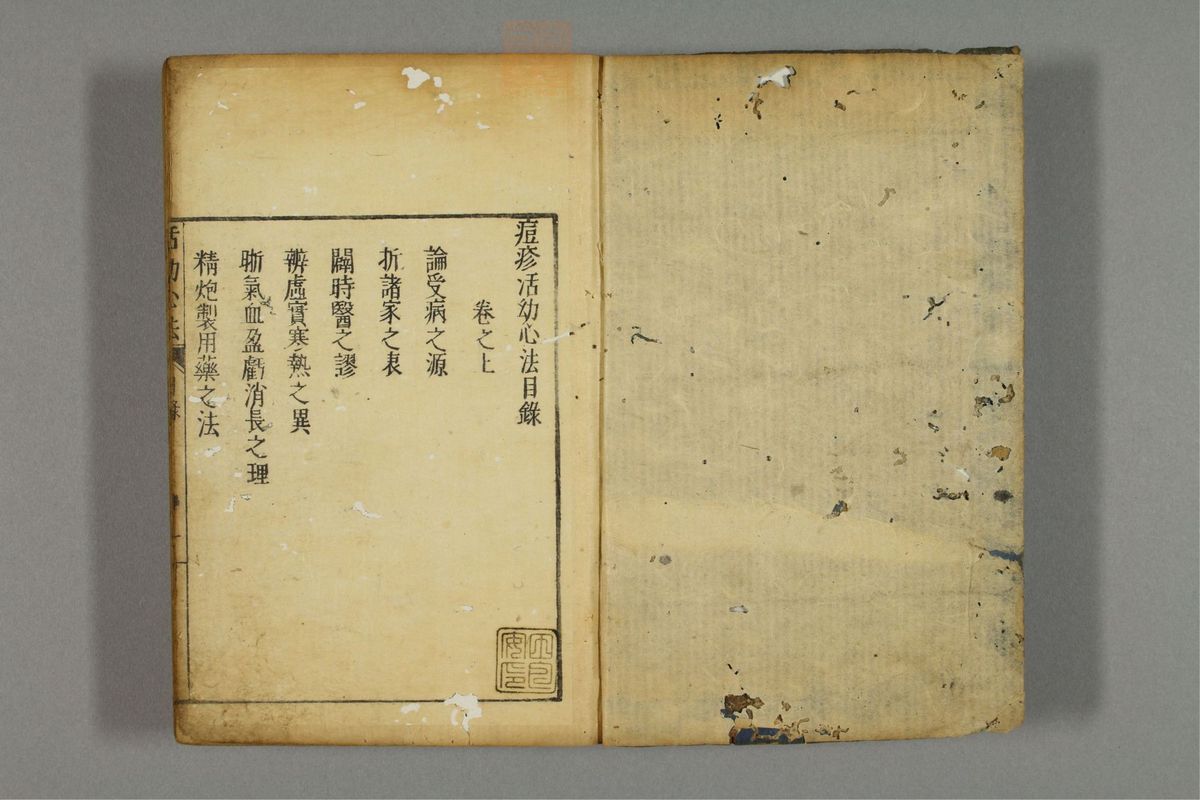 痘疹活幼心法目錄
卷之上
論受病之源
折諸家之衷
闢時醫之謬
辨虛實寒熱之異
晰氣血盈虧消長之理
精炮製用藥之法
活幼心法 目錄